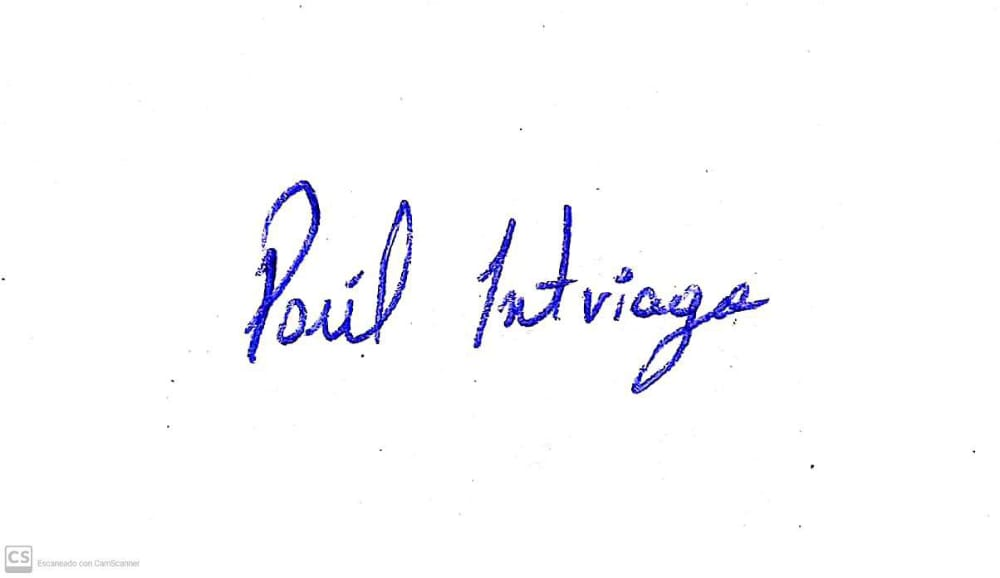 Paúl Intviaga
CS Escaneado con CamScanner